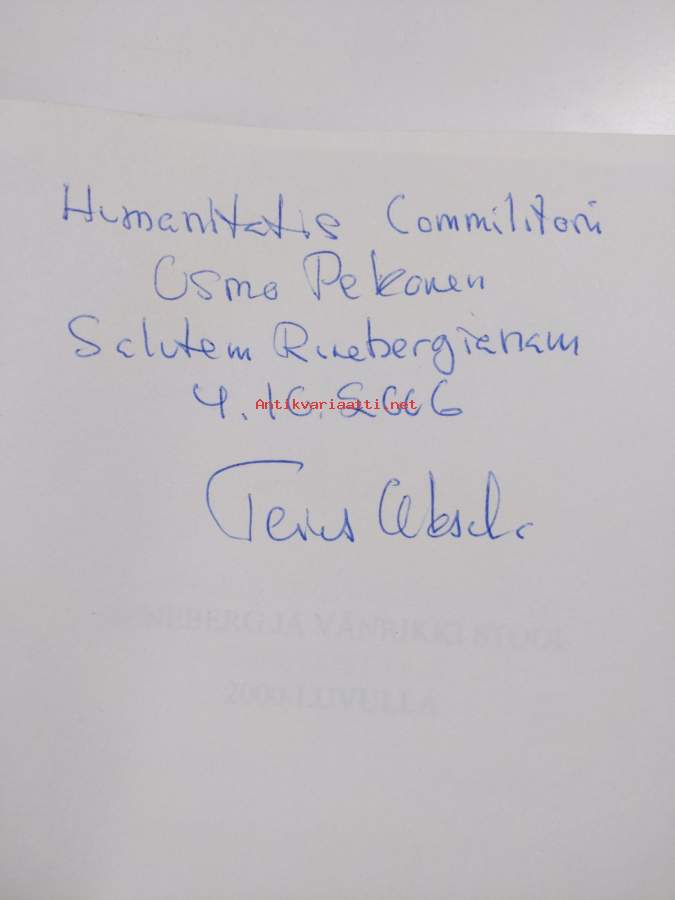 Humanitatis Commilitoni
Osmo Pekonen
Salutem Runebergianam
4.10.2006
Antikvariaatti.net
JA VÄNRIKKI STOOL
2000-LUVULLA